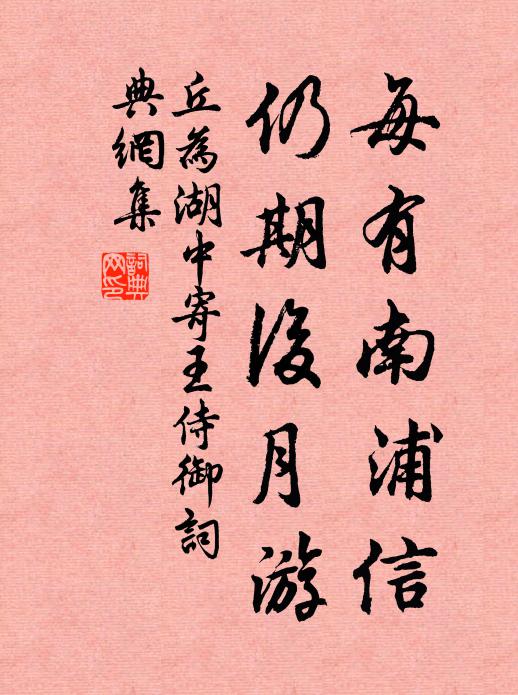 每有南浦信
仍期後月游
丘為湖中寄王侍御詞
典網集
詞典網印